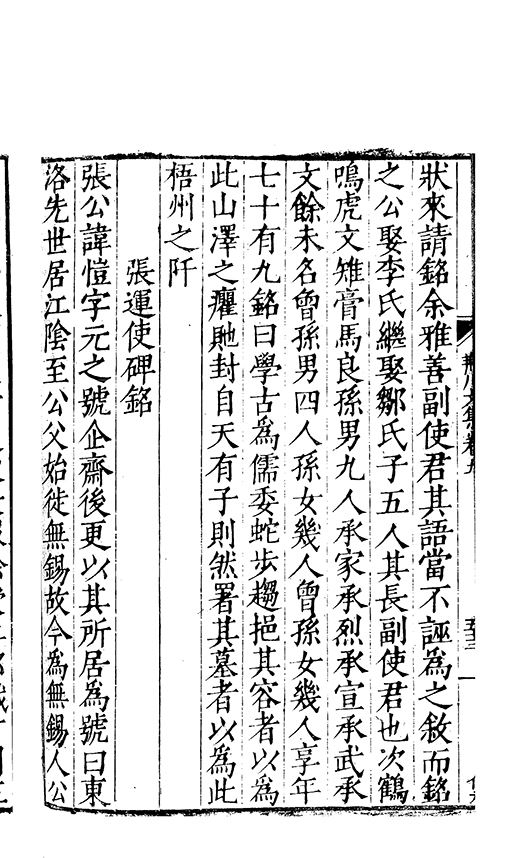 狀來請銘余雅善副使君其語當不誣爲之敘而銘
之公娶李氏繼娶鄒氏子五人其長副使君也次鶴
鳴虎文雉膏馬良孫男九人承家承烈承宣承武承
文餘未名曾孫男四人孫女幾人曾孫女幾人享年
七十有九銘曰學古爲儒委蛇步趨挹其容者以爲
此山澤之癯貤封自天有子則然署其墓者以爲此
梧州之阡
張運使碑銘
張公諱愷字元之號企齋後更以其所居爲號曰東
洛先世居江陰至公父始徙無錫故今爲無錫人公